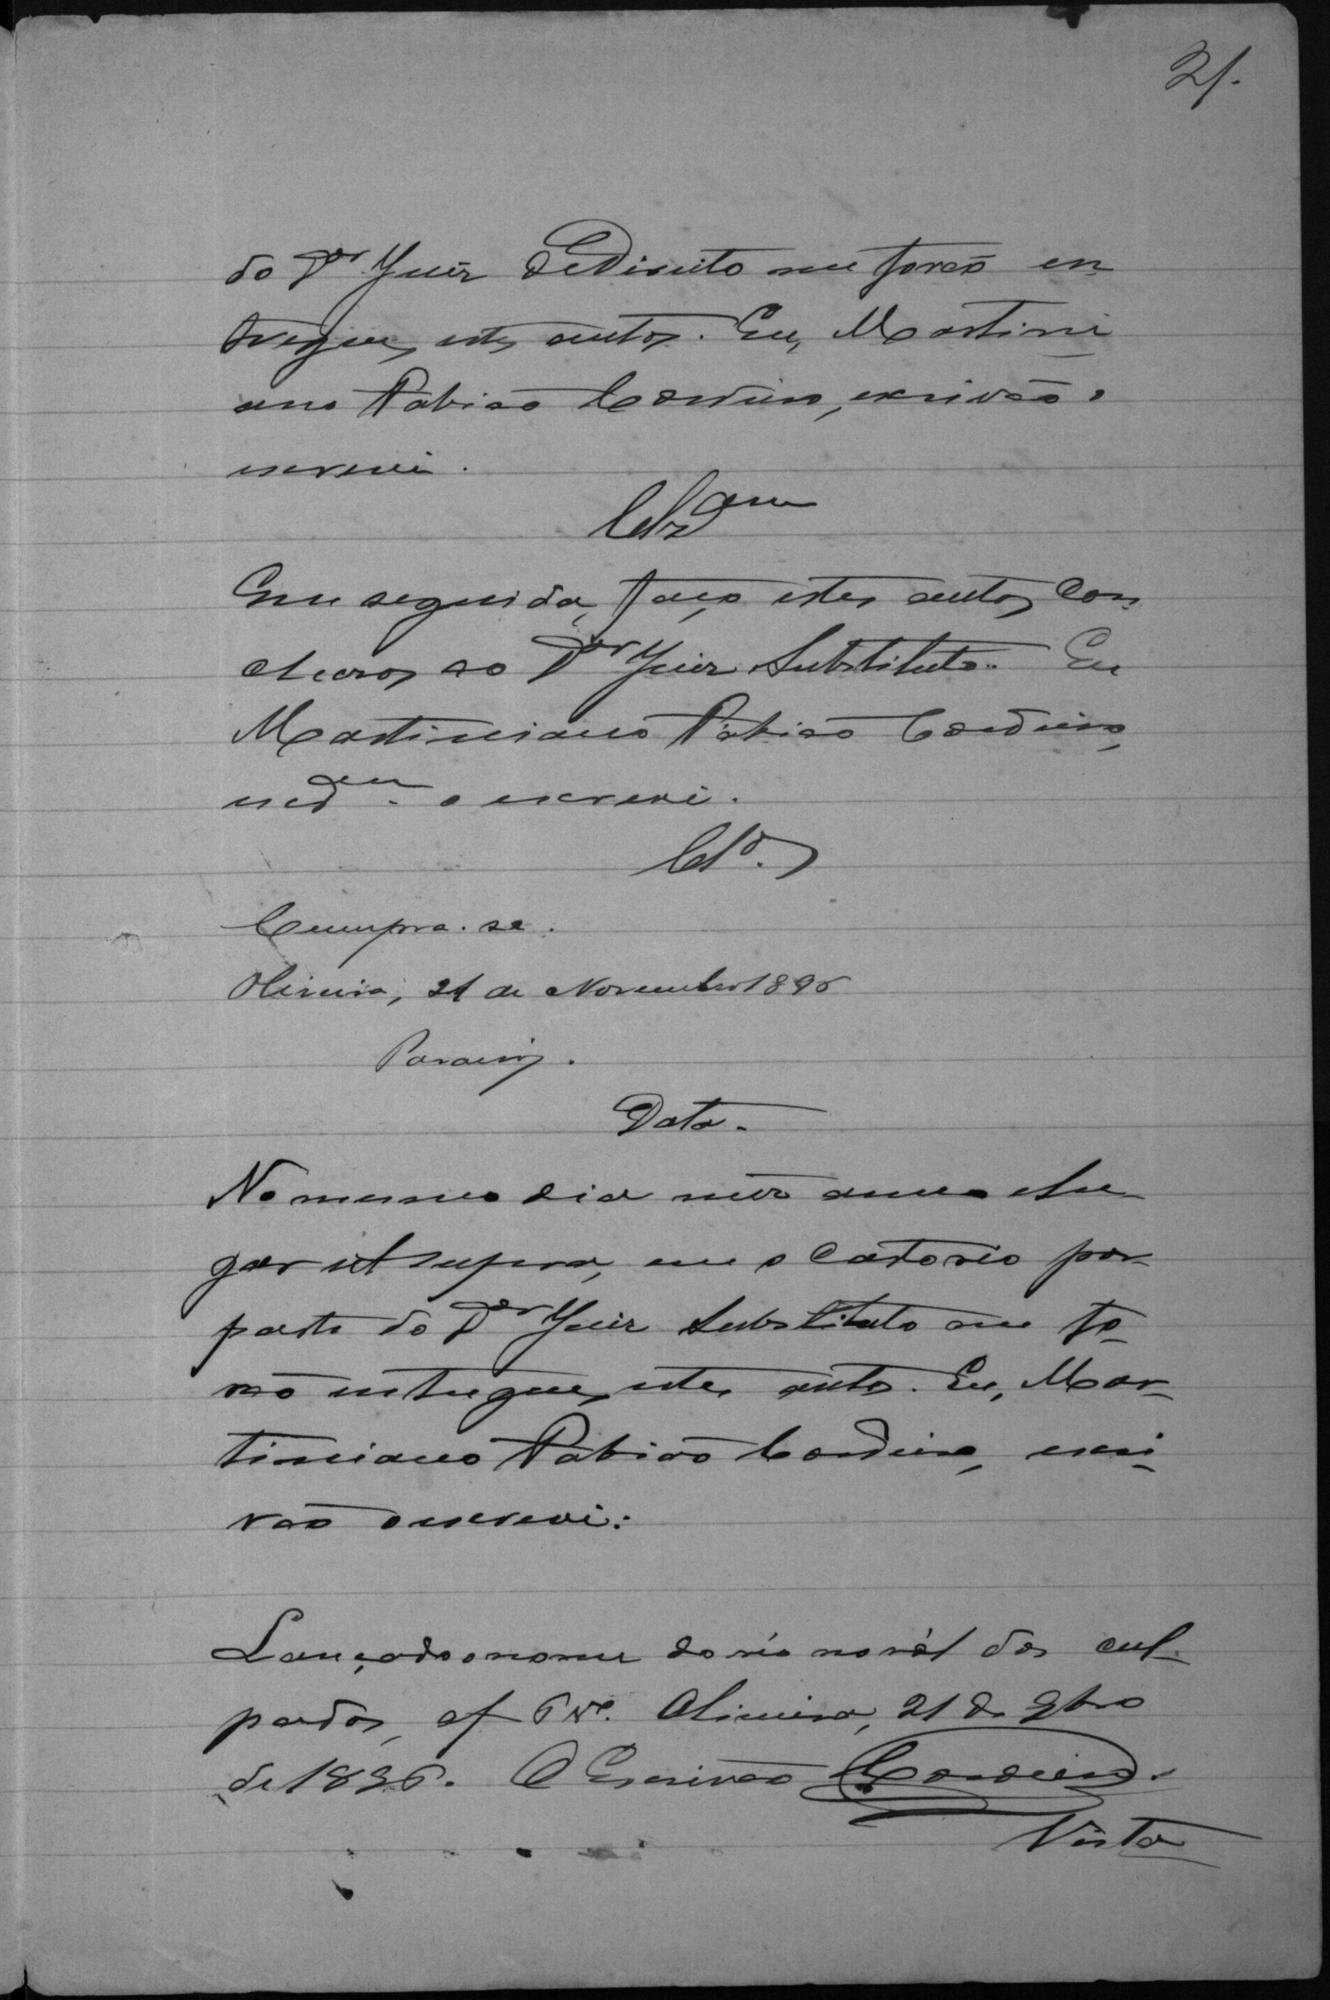 21.
do Dor Juiz de Direito me forão en
tregues estes autos. Eu, Martini
ano Cordeiro, escrivão o
escrevi.
Clsão
Em seguida, faço estes autos con
clusos ao Dor Juiz Substituto. Eu
Martiniano Cordeiro,
escrevi.
Cls.
Cumpra-se.
Oliveira, 21 de Novembro 1896
Data.
No mesmo dia mez anno e lu-
gar ut supra, em o Cartorio por
parte do Dor Juiz Substituto me fo-
rão entregues estes autos. Eu, Mar-
tiniano Cordeiro, escri-
vão o escrevi.
Lançado o nome do réo no ról dos cul-
pados, af 6 vo. Oliveira, 21 de 9bro
de 1896. O Escrivão Cordeiro.
Vista